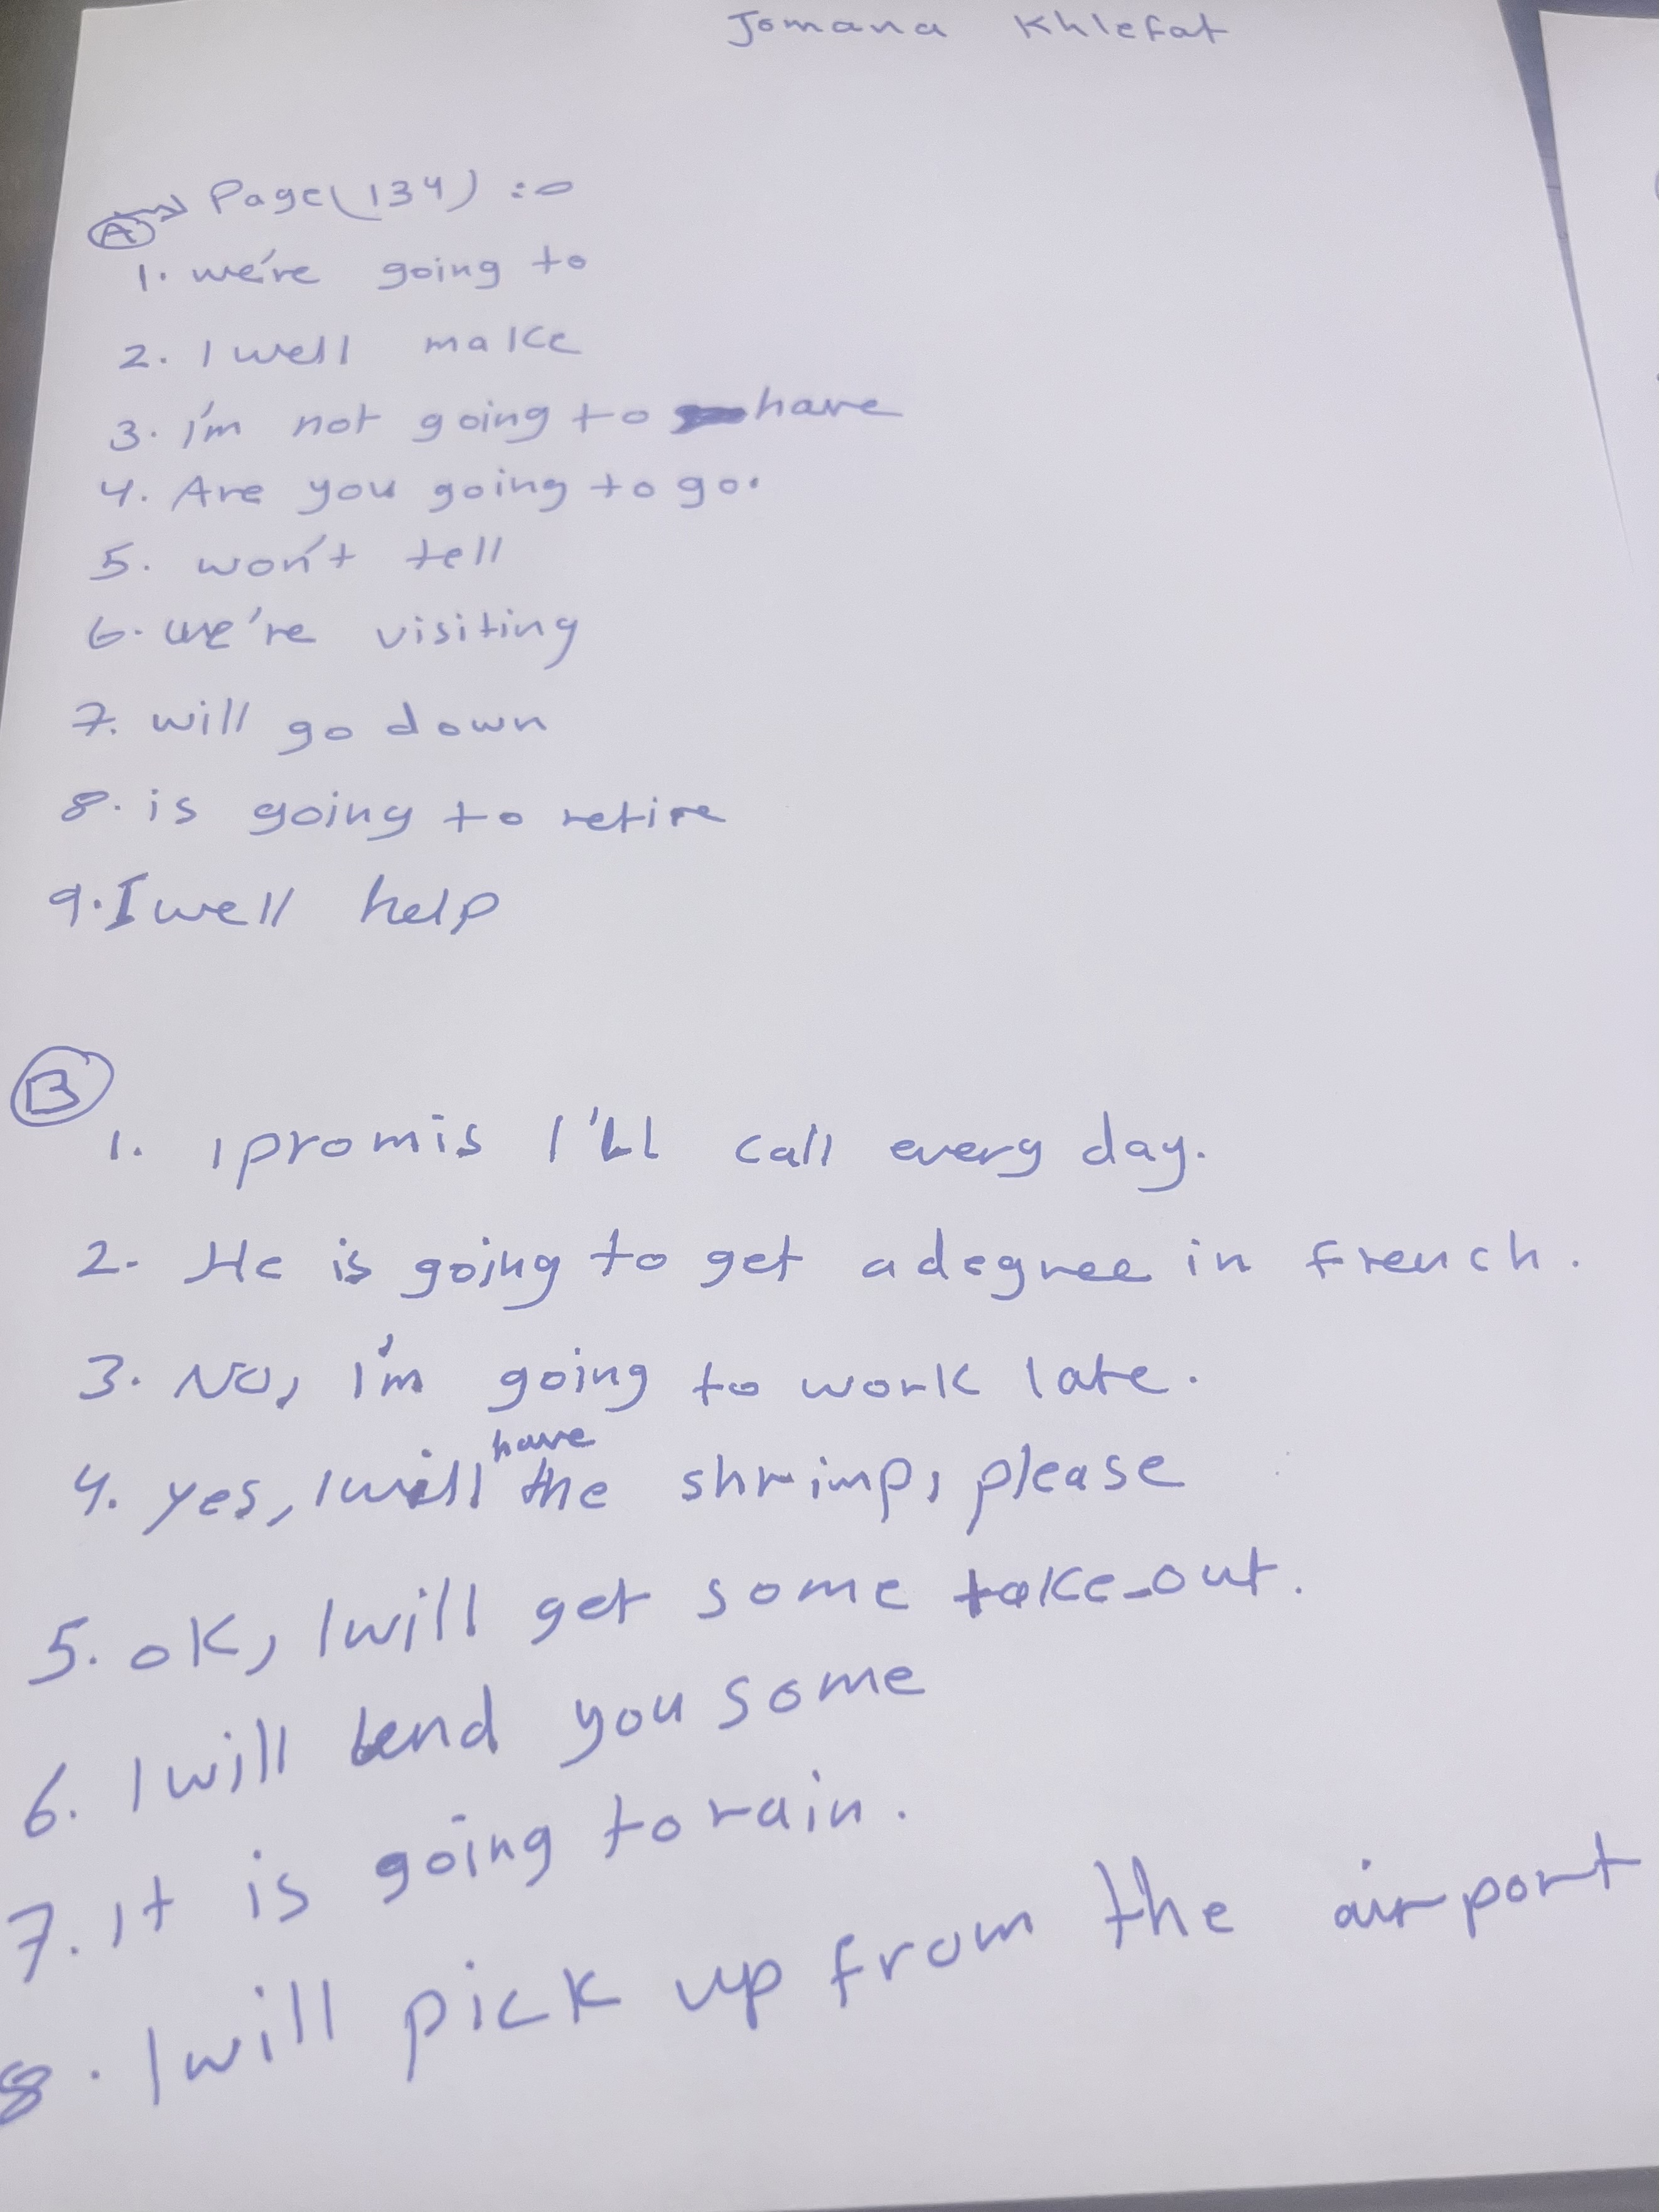 Jomana Khlefat
A → Page (134) :-
1. we're going to
2. I well make
3. i'm not going to have
4. Are you going to go.
5. won't tell
6. we're visiting
7. will go down
8. is going to retire
9. I well help
B
1. I promis I'll call every day.
2. He is going to get a degree in french.
3. No, I'm going to work late.
4. yes, I will have the shrimp, please
5. ok, I will get some take-out.
6. I will lend you some
7. it is going to rain.
8. I will pick up from the airport